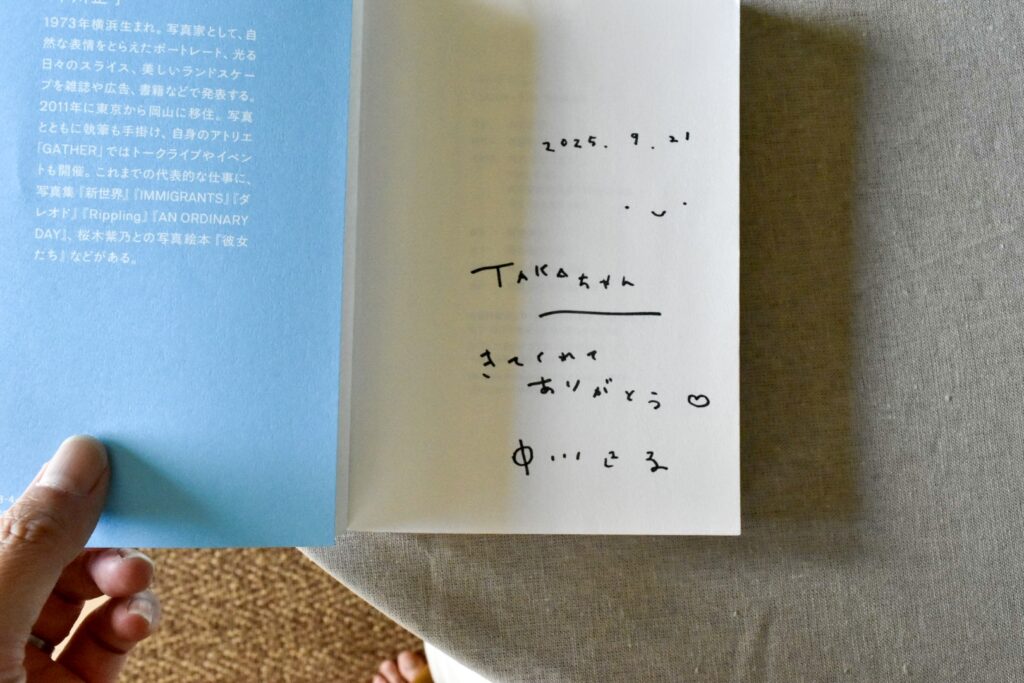 1973年横浜生まれ。写真家として、自
然な表情をとらえたポートレート、光る
日々のスライス、美しいランドスケー
プを雑誌や広告、書籍などで発表する。
2011年に東京から岡山に移住。写真
とともに執筆も手掛け、自身のアトリエ
「GATHER」ではトークライブやイベン
トも開催。これまでの代表的な仕事に、
写真集『新世界』『IMMIGRANTS』『ダ
レオド』『Rippling』『AN ORDINARY
DAY』、桜木紫乃との写真絵本『彼女
たち』などがある。
2025. 9. 21
TAKAちゃん
きてくれて
ありがとう